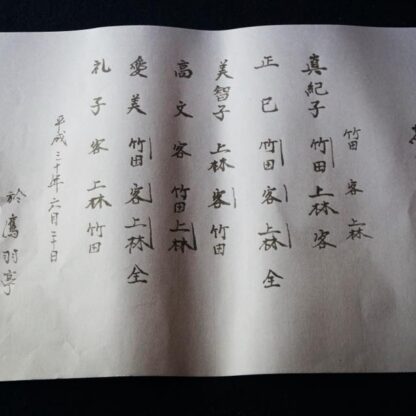 竹田 客 上林
真紀子 竹田 上林 客
正巳 竹田 客 上林 全
美智子 上林 客 竹田
高文 客 竹田 上林
愛美 竹田 客 上林 全
礼子 客 上林 竹田
平成三十年六月三十日
於 鷹羽亭